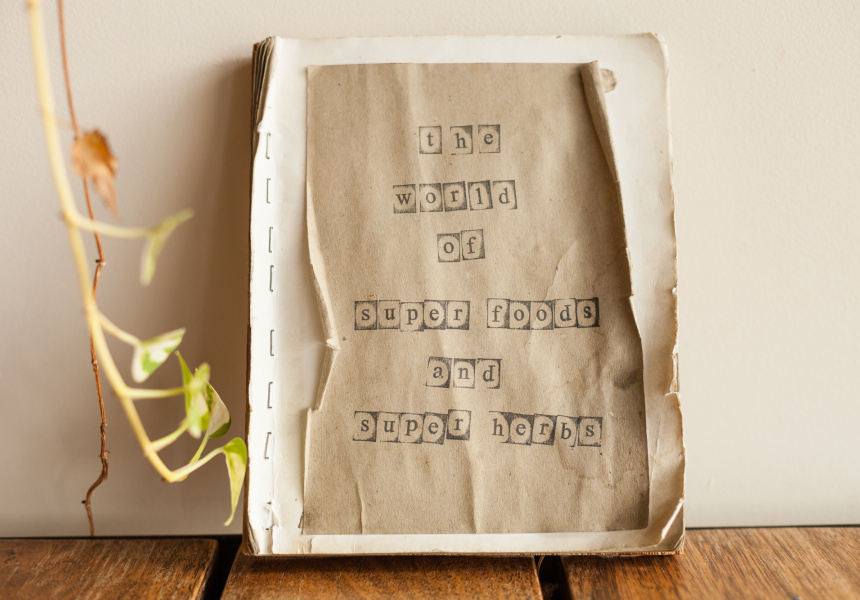 the
world
of
super foods
and
super herbs